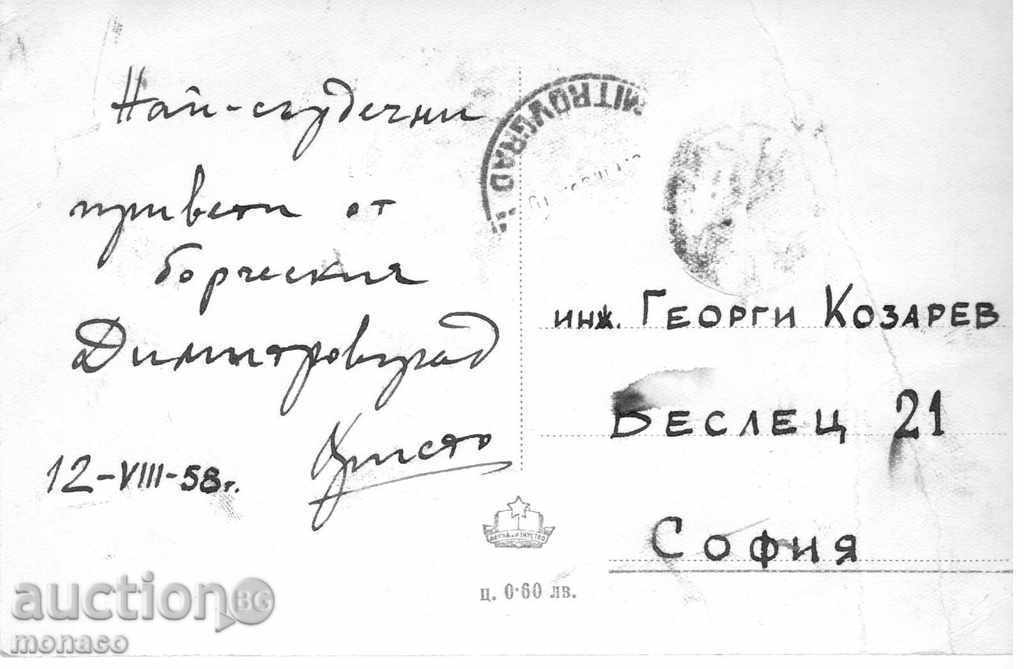 Най-сърдечни
привети от
борческия
Димитровград
Христо
12-VIII-58г.
MITROVGRAD
инж. ГЕОРГИ КОЗАРЕВ
БЕСЛЕЦ 21
СОФИЯ
ц. 0·60 лв.
auctionBG
monaco